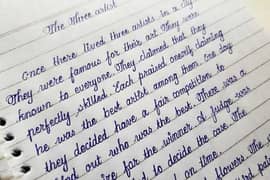 The Three artist
Once there lived three artists in a city.
They were famous for their art. They were
known to everyone. They claimed that they
perfectly skilled. Each praised oneself, claiming
he was the best artist among them. One day
they decided have a fair competition to
find out who was the best. There was a
for the winner. A judge was
to decide the case. The
on time.
flowers. The